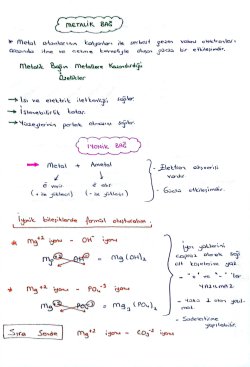 METALİK BAĞ
* Metal atomlarının katyonları ile serbest gezen valans elektronları
arasında itme ve çekme kuvvetiyle oluşan güçlü bir etkileşimdir.
Metalik Bağın Metallere Kazandırdığı
Özellikler
→ Isı ve elektrik iletkenliği sağlar.
→ İşlenebilirlik katar.
→ Yüzeylerinin parlak olmasını sağlar.
İYONİK BAĞ
→ Metal + Ametal
e⁻ verir e⁻ alır
(+ ile yüklenir) (- ile yüklenir)
- Elektron alışverişi
vardır.
- Güçlü etkileşimdir.
İyonik bileşiklerde formül oluşturulması
* Mg⁺² iyonu - OH⁻ iyonu
Mg⁺² OH⁻ = Mg(OH)₂
* Mg⁺² iyonu - PO₄⁻³ iyonu
Mg⁺² PO₄⁻³ = Mg₃(PO₄)₂
İyon yüklerini
çapraz olarak sağ
alt köşelerine yaz.
- "+" ve "-" ler
YAZILMAZ
- Yükü 1 olan yazıl-
maz.
- Sadeleştirme
yapılabilir.
Sıra Sende Mg⁺² iyonu - CO₃⁻² iyonu